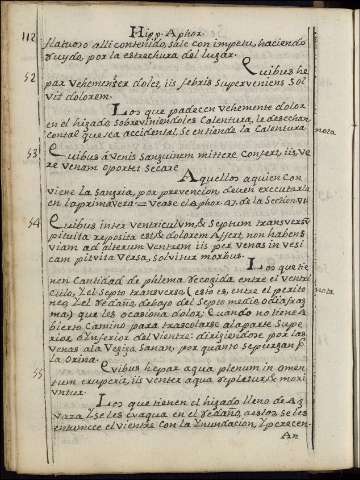 112
Hipp. Aphor.
flatuoso alli contenido, sale con impetu, haciendo
ruydo, por la estrechura del lugar.
52
Quibus he
par vehementer dolet, iis febris superveniens sol
vit dolorem.
Los que padecen vehemente dolor
en el higado sobreviniendoles Calentura, le desechan
con tal que sea accidental. Se entiende la Calentura
nota
53
Quibus à venis sanguinem mittere confert, iis, ve
re venam oportet secare
Aquellos a quien con
viene la sangria, por prevencion, deven executarla
en la primavera = vease el Aphor. 47. de la Section VI
54
Quibus inter ventriculum, & septum transversũ
pituita reposita est, & dolorem affert, non habens
viam ad alterum ventrem iis per venas in vesi
cam pituita versa, solvitur morbus.
Los que tie
nen cantidad de phlema recogida entre el ventri
culo, y el septo transverso (esto es, entre el perito
nota
neo, y el redaño, debajo del septo medio, o diafrag
ma) que les ocasiona dolor; & quando no tiene A
bierto camino para trascolarse a la parte supe
rior, o inferior del vientre: dirigiendose por las
venas a la Vegiga sanan, por quanto se purgan p.r
la Orina.
55
Quibus hepar aqua plenum in omen
tum eruperit, iis venter aqua repletur, & mori
untur.
Los que tienen el higado lleno de Ag
va para, y se les evaqua en el redaño, a estos se les
entumece el vientre con la ynundacion, y perecen.
An